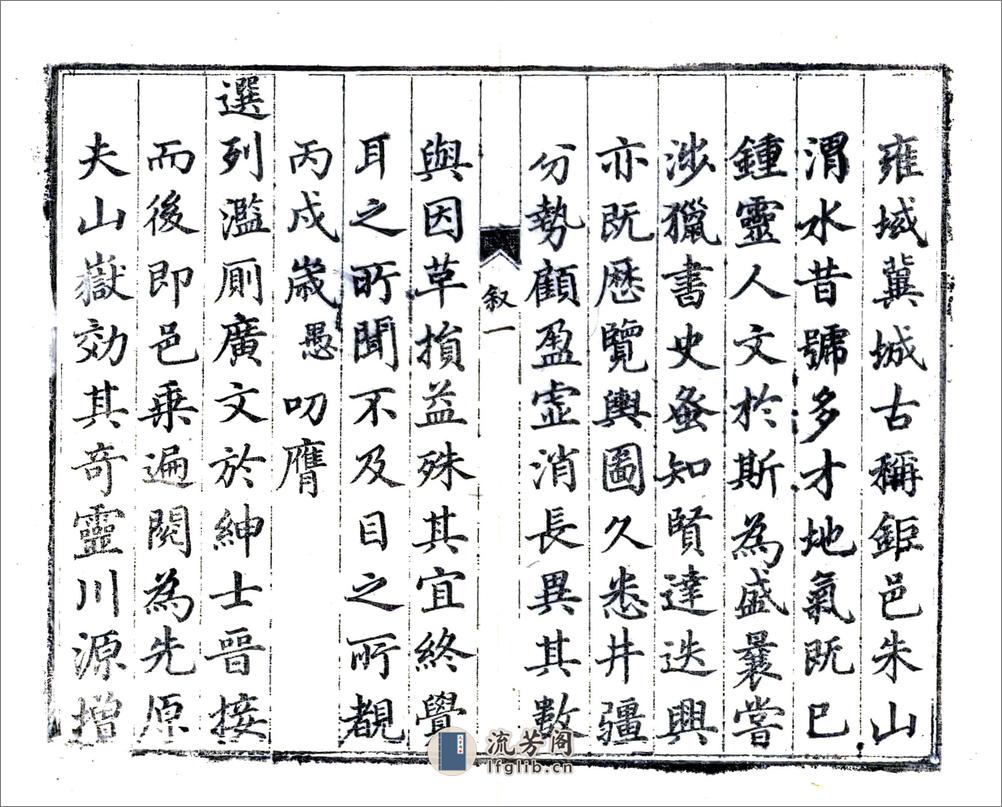 雍域冀城古稱鉅邑朱山
渭水昔號多才地氣既已
鍾靈人文於斯為盛曩嘗
涉獵書史蚤知賢達迭興
亦既歷覽輿圖久悉井疆
分勢顧盈虛消長異其數
叙一
與因革損益殊其宜終覺
耳之所聞不及目之所覩
丙戌歲愚叨膺
選列濫厠廣文於紳士晉接
而後即邑乗遍閱為先原
夫山嶽効其竒靈川源增
流芳阁
lfglib.cn